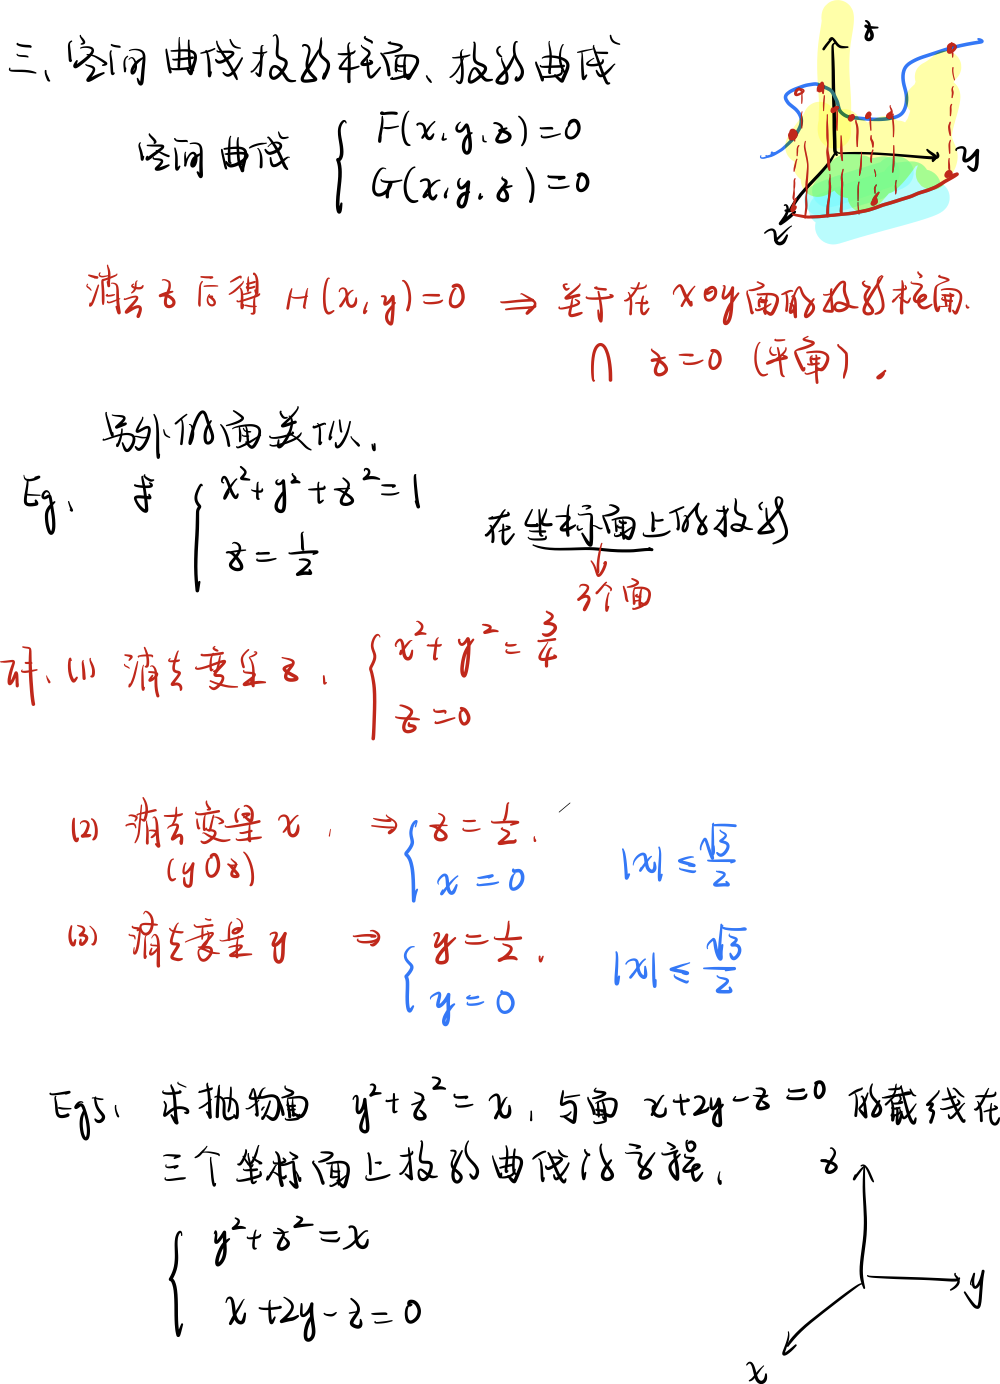 三、空间曲线投影柱面、投影曲线
z
y
x
空间曲线 { F(x,y,z)=0
G(x,y,z)=0
消去z后得 H(x,y)=0 ⇒ 关于在xoy面的投影柱面.
∩ z=0 (平面).
另外的面类似.
Eg. 求 { x²+y²+z²=1
z=1/2
在坐标面上的投影
↓
3个面
解.(1) 消去变量z. { x²+y²=3/4
z=0
(2) 消去变量x. ⇒ { z=1/2.
(yOz)
x=0 |x|≤√3/2
(3) 消去变量y ⇒ { y=1/2.
y=0 |x|≤√3/2
Eg5. 求抛物面 y²+z²=x, 与面 x+2y-z=0 的截线在
三个坐标面上投影曲线的方程.
{ y²+z²=x
x+2y-z=0
z
y
x